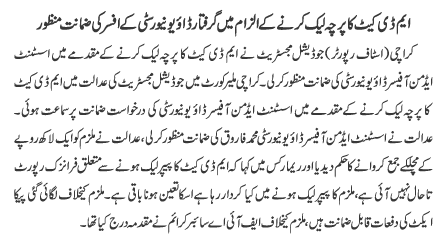 ایم ڈی کیٹ کا پرچہ لیک کرنے کے الزام میں گرفتار ڈاؤ یونیورسٹی کے افسر کی ضمانت منظور
کراچی (اسٹاف رپورٹر) جوڈیشل مجسٹریٹ نے ایم ڈی کیٹ کا پرچہ لیک کرنے کے مقدمے میں اسسٹنٹ
ایڈمن آفیسر ڈاؤ یونیورسٹی کی ضمانت منظور کرلی۔ کراچی ملیر کورٹ میں جوڈیشل مجسٹریٹ کی عدالت میں ایم ڈی کیٹ
کا پرچہ لیک کرنے کے مقدمے میں اسسٹنٹ ایڈمن آفیسر ڈاؤ یونیورسٹی کی درخواست ضمانت پر سماعت ہوئی۔
عدالت نے اسسٹنٹ ایڈمن آفیسر ڈاؤ یونیورسٹی محمد فاروق کی ضمانت منظور کرلی، عدالت نے ملزم کو ایک لاکھ روپے
کے مچلکے جمع کروانے کا حکم دیدیا اور ریمارکس میں کہا کہ ایم ڈی کیٹ کا پیپر لیک ہونے سے متعلق فرانزک رپورٹ
تاحال نہیں آئی ہے، ملزم کا پیپر لیک ہونے میں کیا کردار رہا ہے اسکا تعین ہونا باقی ہے۔ ملزم کیخلاف لگائی گئی پیکا
ایکٹ کی دفعات قابل ضمانت ہیں، ملزم کیخلاف ایف آئی اے سائبر کرائم نے مقدمہ درج کیا تھا۔